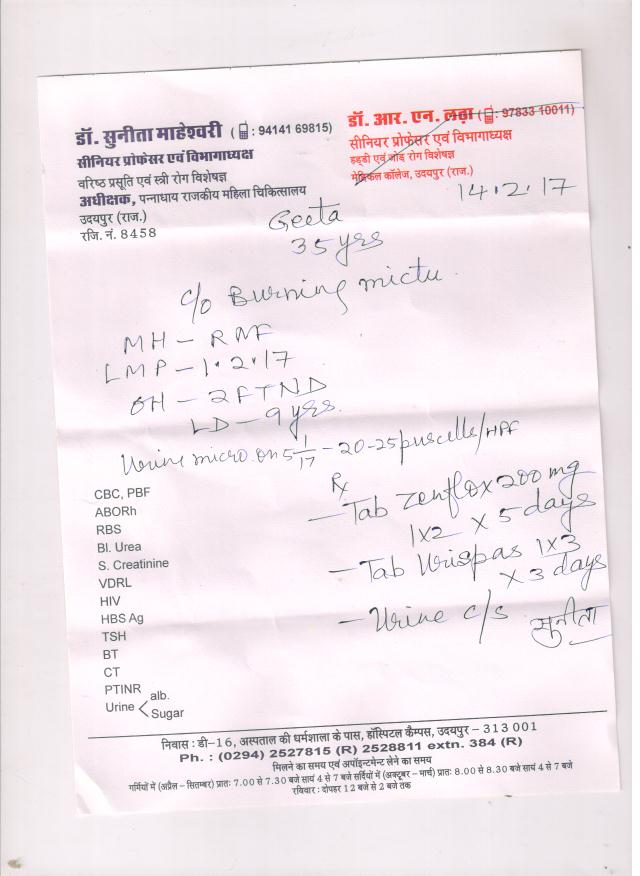 डॉ. सुनीता माहेश्वरी ( : 94141 69815)
सीनियर प्रोफेसर एवं विभागाध्यक्ष
वरिष्ठ प्रसूति एवं स्त्री रोग विशेषज्ञ
अधीक्षक, पन्नाधाय राजकीय महिला चिकित्सालय
उदयपुर (राज.)
रजि. नं. 8458
डॉ. आर. एन. लढ़ा ( : 97833 10011)
सीनियर प्रोफेसर एवं विभागाध्यक्ष
हड्डी एवं जोड़ रोग विशेषज्ञ
मेडिकल कॉलेज, उदयपुर (राज.)
14.2.17
Geeta
35 yrs
c/o Burning mictu.
MH - RMF
LMP - 1.2.17
OH - 2FTND
LD - 9 yrs.
Urine micro. on 5 1/17 - 20-25 pus cells/HPF
CBC, PBF
ABORh
RBS
Bl. Urea
S. Creatinine
VDRL
HIV
HBS Ag
TSH
BT
CT
PTINR
Urine < alb.
Sugar
Rx
- Tab Zenflox 200 mg
1x2 x 5 days
- Tab Urispas 1x3
x 3 days
- Urine c/s
सुनीता
निवास : डी-16, अस्पताल की धर्मशाला के पास, हॉस्पिटल कैम्पस, उदयपुर - 313 001
Ph. : (0294) 2527815 (R) 2528811 extn. 384 (R)
मिलने का समय एवं अपॉइन्टमेन्ट लेने का समय
गर्मियों में (अप्रैल - सितम्बर) प्रातः 7.00 से 7.30 बजे सायं 4 से 7 बजे सर्दियों में (अक्टूबर - मार्च) प्रातः 8.00 से 8.30 बजे सायं 4 से 7 बजे
रविवार : दोपहर 12 बजे से 2 बजे तक